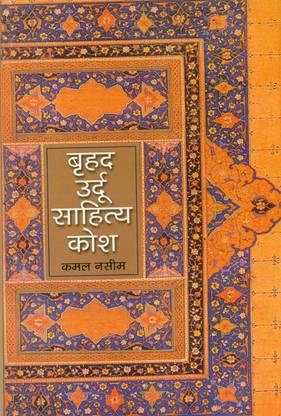 बृहद
उर्दू
साहित्य
कोश
कमल नसीम